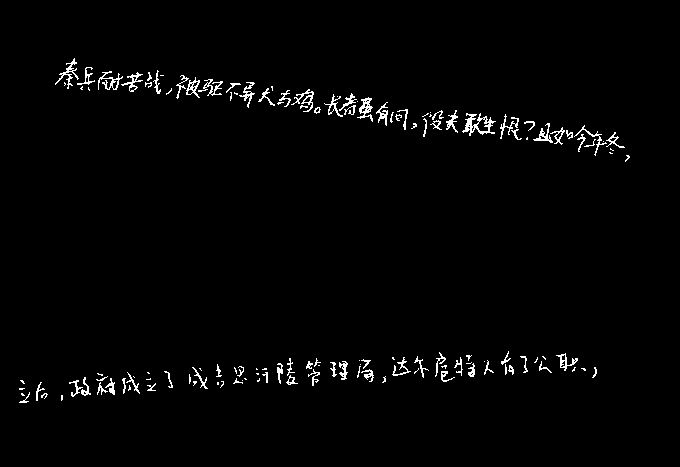 秦兵耐苦战，被驱不异犬与鸡。长者虽有问，役夫敢生恨？且如今年冬，
立后，政府成立了成吉思汗陵管理局，达尔扈特人有了公职，